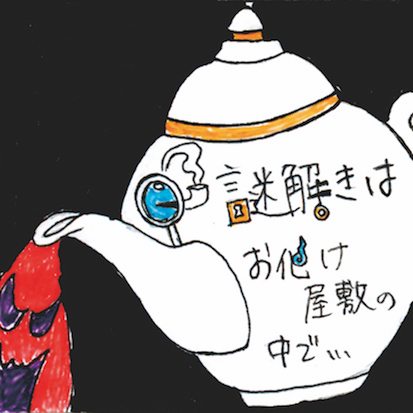 謎解きは
お化け
屋敷の
中で…